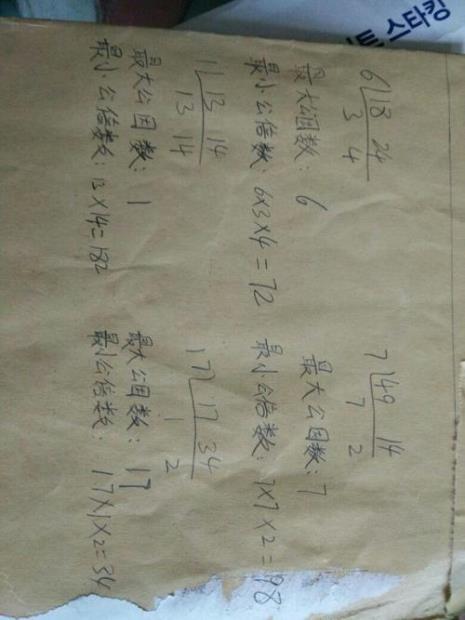 트 스타킹
6 18 24
3 4
最大公因数: 6
最小公倍数: 6×3×4=72
7 49 14
7 2
最大公因数: 7
最小公倍数: 7×7×2=98
1 13 14
13 14
最大公因数: 1
最小公倍数: 13×14=182
17 17 34
1 2
最大公因数: 17
最小公倍数: 17×1×2=34